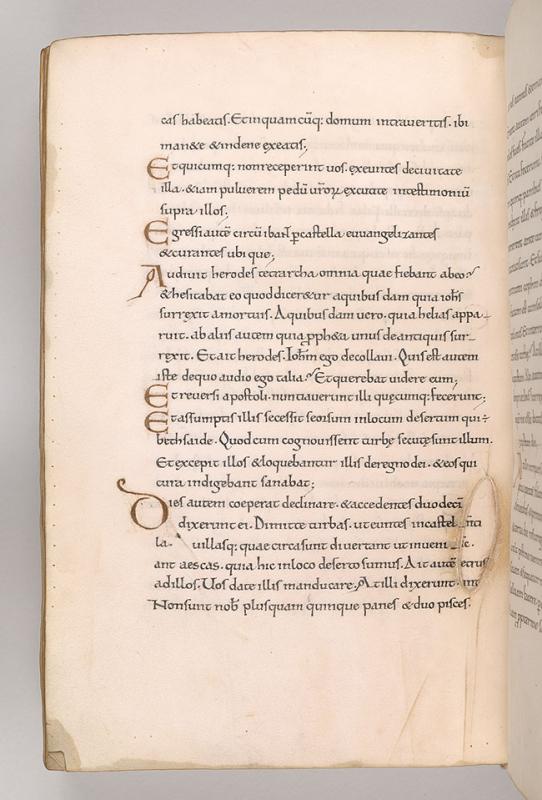 cas habeatis. Et inquamcūq: domum intraveritis. ibi
man&e &indene exeatis;
Et quicumq: nonreceperint uos. exeuntes decivitate
illa. &iam pulverem pedū ur̄oꝝ excutite intestimoniū
supra illos;
Egressi autē circūibant ꝑcastella euuangelizantes
&curantes ubique;
Audivit herodes tetrarcha omnia quae fiebant abeo
&hesitabat eo quod dicer&ur aquibusdam quia ioh̄s
surrexit amortuis. Aquibusdam vero. quia helias appa
ruit. abaliis autem quia ꝓph&a unus deantiquis sur
rexit. Etait herodes. Ioh̄m ego decollavi. Quisest autem
iste dequo audio ego talia; Etquerebat uidere eum;
Et reversi apostoli. nuntiaverunt illi quęcumq: fecerunt;
Etassumptis illis secessit seorsum inlocum desertum qui÷
bethsaide. Quod cum cognouissent turbę secutęsunt illum.
Etexcepit illos &loquebantur illis deregno dei. &eosqui
cura indigebant sanabat;
Dies autem coeperat declinare. &accedentes duodeci
dixerunt ei. Dimitte turbas. ut euntes incastel
la. uillasq: quae circasunt divertant ut inveni
ant aescas. quia hic inloco deserto sumus. Ait autē
adillos. Uos date illis manducare. At illi dixerunt.
Nonsunt nob̄ plusquam quinque panes &duo pisces.